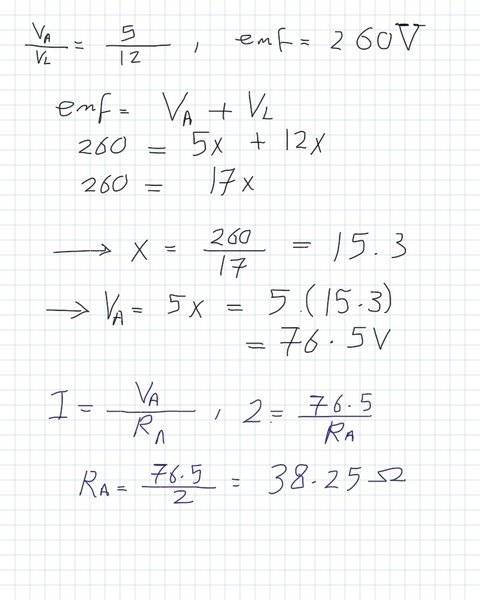 V_A/V_L = 5/12 , emf = 260V
emf = V_A + V_L
260 = 5x + 12x
260 = 17x
→ x = 260/17 = 15.3
→ V_A = 5x = 5.(15.3)
= 76.5V
I = V_A/R_A , 2 = 76.5/R_A
R_A = 76.5/2 = 38.25Ω